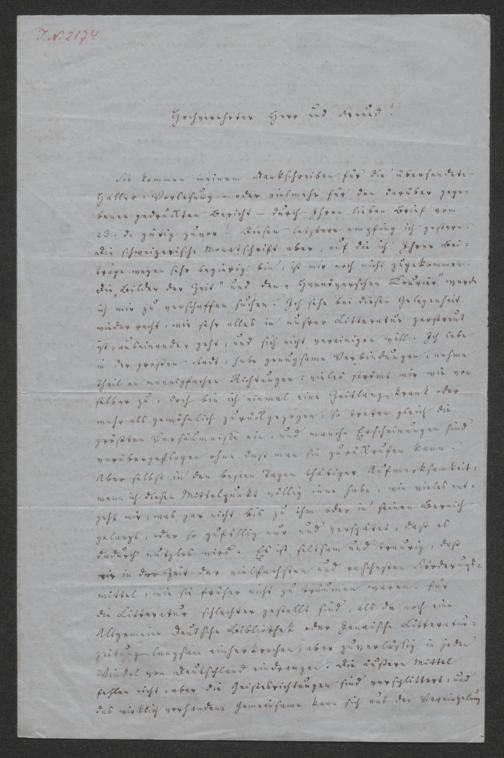 J.N. 2174
Hochverehrter Herr und Freund!
Sie kommen meinem Dankschreiben für die übersendete
Haller-Vorlesung – oder vielmehr für den darüber gege-
benen gedruckten Bericht – durch Ihren lieben Brief vom
23. d. gütig zuvor! Diesen letztern empfing ich gestern.
Die schweizerische Monatschrift aber, auf die ich Ihrer Bei-
träge wegen sehr begierig bin, ist mir noch nicht zugekommen.
Die „Bilder der Zeit" und den „Hannöverschen Courier" werde
ich mir zu verschaffen suchen. Ich sehe bei dieser Gelegenheit
wieder recht, wie sehr alles in unsrer Litteratur zerstreut
ist, auseinander geht, und sich nicht vereinigen will. Ich lebe
in der großen Stadt, habe genugsame Verbindungen, nehme
Theil an mannigfachen Richtungen; vieles strömt mir wie von
selber zu, doch bin ich einmal eine Zeitlang krank oder
mehr als gewöhnlich zurückgezogen, so treten gleich die
größten Versäumnisse ein, und manche Erscheinungen sind
vorübergeflogen ohne daß man sie zurückrufen kann.
Aber selbst in den besten Tagen thätiger Aufmerksamkeit,
wenn ich diesen Mittelpunkt völlig inne habe, wie vieles ent-
geht mir, was gar nicht bis zu ihm oder in seinen Bereich
gelangt, oder so zufällig nur und verspätet, daß es
dadurch nutzlos wird. Es ist seltsam und traurig, daß
wir in der Zeit der vielfachsten und raschesten Förderungs-
mittel, wie sie früher nicht zu träumen waren, für
die Litteratur schlechter gestellt sind, als da noch eine
Allgemeine Deutsche Bibliothek oder Jenaische Litteratur-
zeitung langsam einherkrochen, aber zuverlässig in jeden
Winkel von Deutschland eindrangen. Die äußern Mittel
fehlen nicht, aber die Geistesrichtungen sind zersplittert, und
das wirklich vorhandene Gemeinsame kann sich aus der Vereinzelung